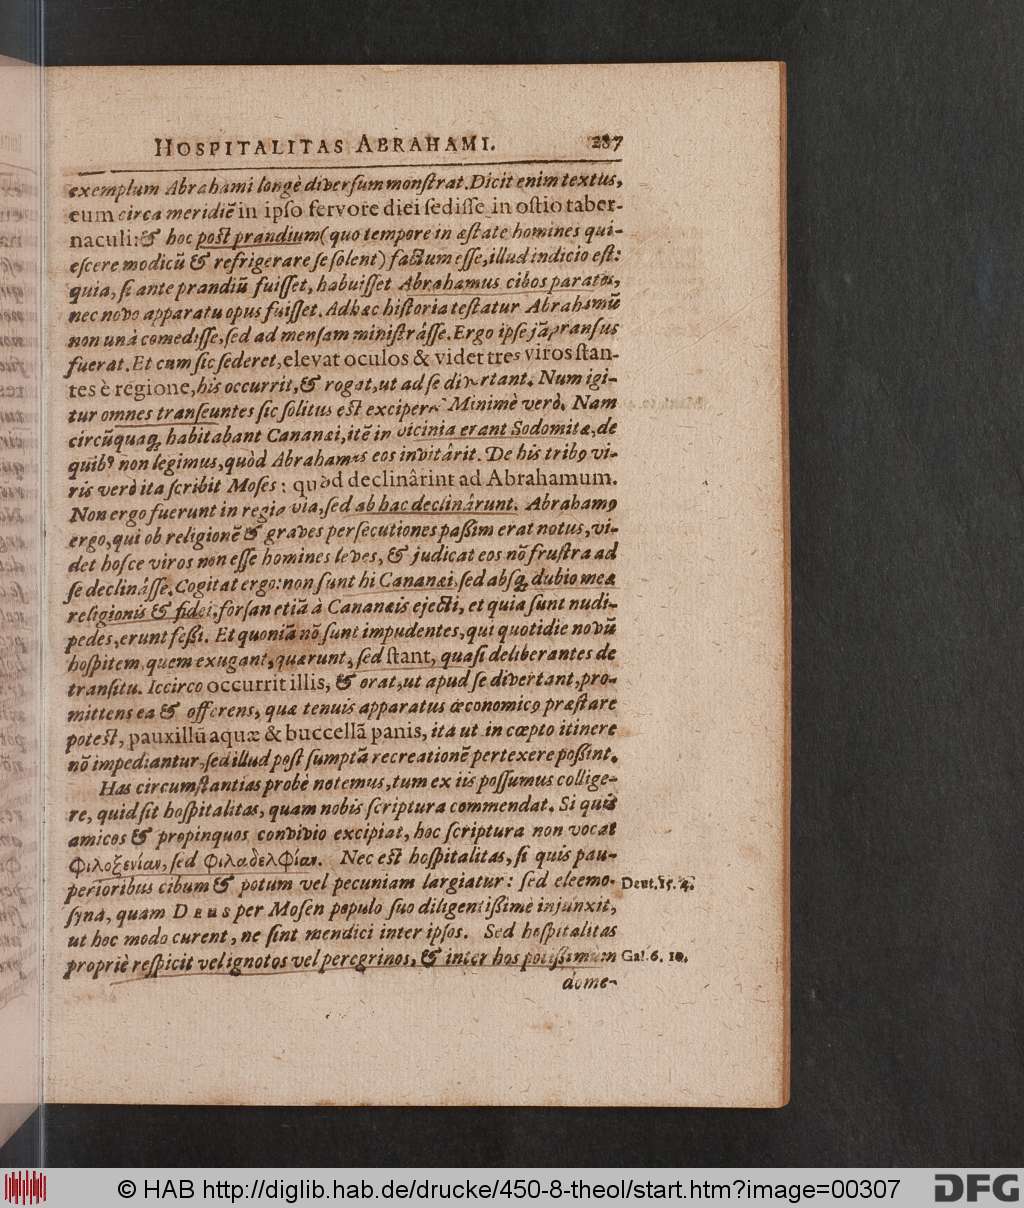 HOSPITALITAS ABRAHAMI. 287
exemplum Abrahami longè diversum monſtrat. Dicit enim textus,
eum circa meridiẽ in ipſo fervore diei ſediſſe in oſtio taber-
naculi: & hoc poſt prandium (quo tempore in æſtate homines qui-
eſcere modicũ & refrigerare ſe ſolent) factum eſſe, illud indicio eſt:
quia, ſi ante prandiũ fuiſſet, habuiſſet Abrahamus cibos paratos,
nec novo apparatu opus fuiſſet. Adhæc hiſtoria teſtatur Abrahamũ
non unà comediſſe, ſed ad menſam miniſtrâſſe. Ergo ipſe jã pranſus
fuerat. Et cum ſic ſederet, elevat oculos & videt tres viros ſtan-
tes è regione, his occurrit, & rogat, ut ad ſe divertant. Num igi-
tur omnes tranſeuntes ſic ſolitus eſt excipere? Minimè verò. Nam
circũquaq; habitabant Cananæi, itẽ in vicinia erant Sodomitæ, de
quibꝰ non legimus, quòd Abrahamus eos invitârit. De his tribꝰ vi-
ris verò ita ſcribit Moſes: quòd declinârint ad Abrahamum.
Non ergo fuerunt in regia via, ſed ab hac declinârunt. Abrahamꝰ
ergo, qui ob religionẽ & graves perſecutiones paſſim erat notus, vi-
det hoſce viros non eſſe homines leves, & judicat eos nõ fruſtra ad
ſe declinâſſe. Cogitat ergo: non ſunt hi Cananæi, ſed abſq; dubio meæ
religionis & fidei, forſan etiã à Cananæis ejecti, et quia ſunt nudi-
pedes, erunt feſſi. Et quoniã nõ ſunt impudentes, qui quotidie novũ
hoſpitem, quem exugant, quærunt, ſed ſtant, quaſi deliberantes de
tranſitu. Iccirco occurrit illis, & orat, ut apud ſe divertant, pro-
mittens ea & offerens, quæ tenuis apparatus œconomicꝰ præſtare
poteſt, pauxillũ aquæ & buccellã panis, ita ut in cœpto itinere
nõ impediantur, ſed illud poſt ſumptã recreationẽ pertexere poſſint.
Has circumſtantias probè notemus, tum ex iis poſſumus collige-
re, quid ſit hoſpitalitas, quam nobis ſcriptura commendat. Si quis
amicos & propinquos convivio excipiat, hoc ſcriptura non vocat
Φιλοξενίαν, ſed Φιλαδελφίαν. Nec eſt hoſpitalitas, ſi quis pau-
perioribus cibum & potum vel pecuniam largiatur: ſed eleemo- Deut. 15. 4.
ſyna, quam DEUS per Moſen populo ſuo diligentiſſimè injunxit,
ut hoc modo curent, ne ſint mendici inter ipſos. Sed hoſpitalitas
propriè reſpicit vel ignotos vel peregrinos, & inter hos potiſſimum Gal. 6. 10.
dome-
© HAB http://diglib.hab.de/drucke/450-8-theol/start.htm?image=00307
DFG